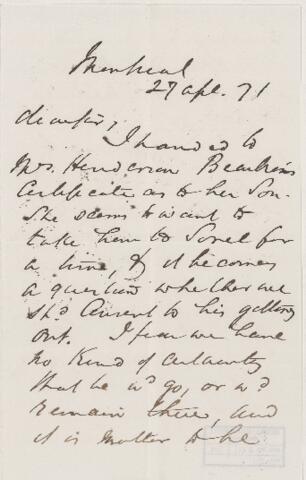 Montreal
27 apl. 71
Dear Sir,
I handed to
Mrs. Henderson Beaubien's
Certificate as to her Son.
She seems to want to
take him to Sorel for
a time, & it becomes
a question whether we
shd. Consent to his getting
out. I fear we have
no Kind of certainty
that he wd. go, or wd.
remain there, and
it is matter to be